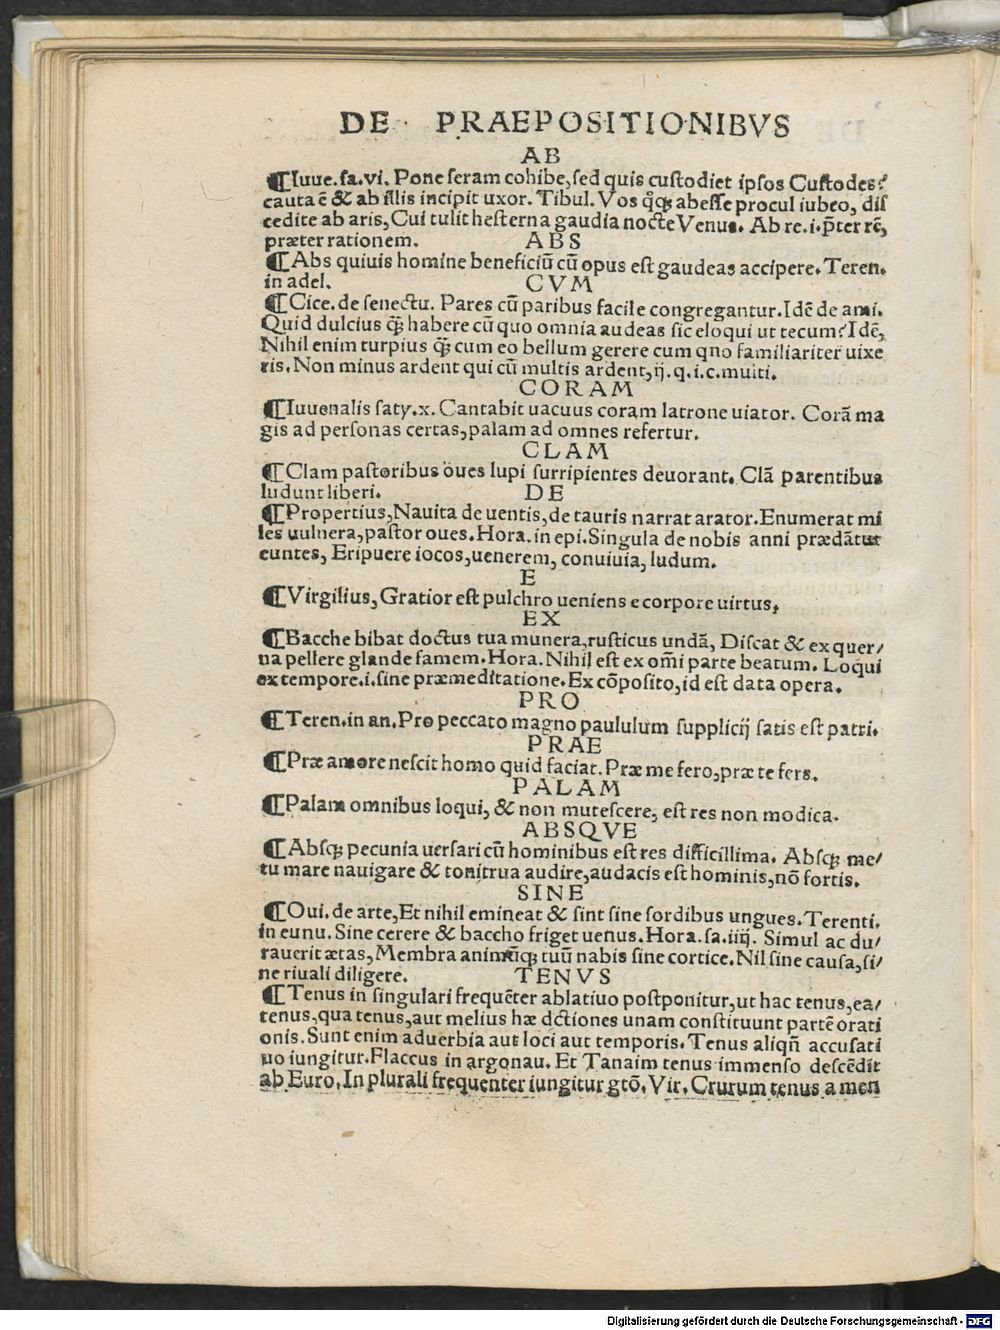 DE PRAEPOSITIONIBVS
AB
¶Iuue.ſa.vi. Pone ſeram cohibe,ſed quis cuſtodiet ipſos Cuſtodes?
cauta ē & ab illis incipit uxor. Tibul. Vos q̊q; abeſſe procul iubeo, diſ
cedite ab aris,Cui tulit heſterna gaudia nocte Venus. Ab re.i.p̄ter rē,
præter rationem. ABS
¶Abs quiuis homine beneficiū cū opus eſt gaudeas accipere.Teren.
in adel. CVM
¶Cice.de ſenectu. Pares cū paribus facile congregantur.Idē de ami.
Quid dulcius q̄; habere cū quo omnia audeas ſic eloqui ut tecum?Idē,
Nihil enim turpius q̄; cum eo bellum gerere cum qno familiariter uixe
ris.Non minus ardent qui cū multis ardent,ij.q.i.c.muiti.
CORAM
¶Iuuenalis ſaty.x. Cantabit uacuus coram latrone uiator. Corā ma
gis ad perſonas certas,palam ad omnes refertur.
CLAM
¶Clam paſtoribus oues lupi ſurripientes deuorant. Clā parentibus
ludunt liberi. DE
¶Propertius,Nauita de uentis,de tauris narrat arator.Enumerat mi
les uulnera,paſtor oues.Hora.in epi.Singula de nobis anni prædātur
euntes, Eripuere iocos,uenerem, conuiuia, ludum.
E
¶Virgilius, Gratior eſt pulchro ueniens e corpore uirtus,
EX
¶Bacche bibat doctus tua munera,ruſticus undā, Diſcat & ex quer/
na pellere glande famem.Hora.Nihil eſt ex om̄i parte beatum. Loqui
ex tempore.i.ſine præmeditatione.Ex cōpoſito,id eſt data opera.
PRO
¶Teren.in an.Pro peccato magno paululum ſupplicij ſatis eſt patri.
PRAE
¶Præ amore neſcit homo quid faciat.Præ me fero,præ te fers.
PALAM
¶Palam omnibus loqui, & non muteſcere, eſt res non modica.
ABSQVE
¶Abſq; pecunia uerſari cū hominibus eſt res difficillima. Abſq; me/
tu mare nauigare & tonitrua audire,audacis eſt hominis,nō fortis.
SINE
¶Oui.de arte,Et nihil emineat & ſint ſine ſordibus ungues.Terenti.
in eunu.Sine cerere & baccho friget uenus.Hora.ſa.iiij. Simul ac du/
rauerit ætas,Membra animūq; tuū nabis ſine cortice.Nil ſine cauſa,ſi/
ne riuali diligere. TENVS
¶Tenus in ſingulari frequēter ablatiuo poſtponitur,ut hac tenus,ea/
tenus,qua tenus,aut melius hæ dctiones unam conſtituunt partē orati
onis.Sunt enim aduerbia aut loci aut temporis.Tenus aliqn̄ accuſati
uo iungitur.Flaccus in argonau. Et Tanaim tenus immenſo deſcēdit
ab Euro,In plurali frequenter iungitur gtō. Vir. Crurum tenus a men
Digitalisierung gefördert durch die Deutsche Forschungsgemeinschaft - DFG